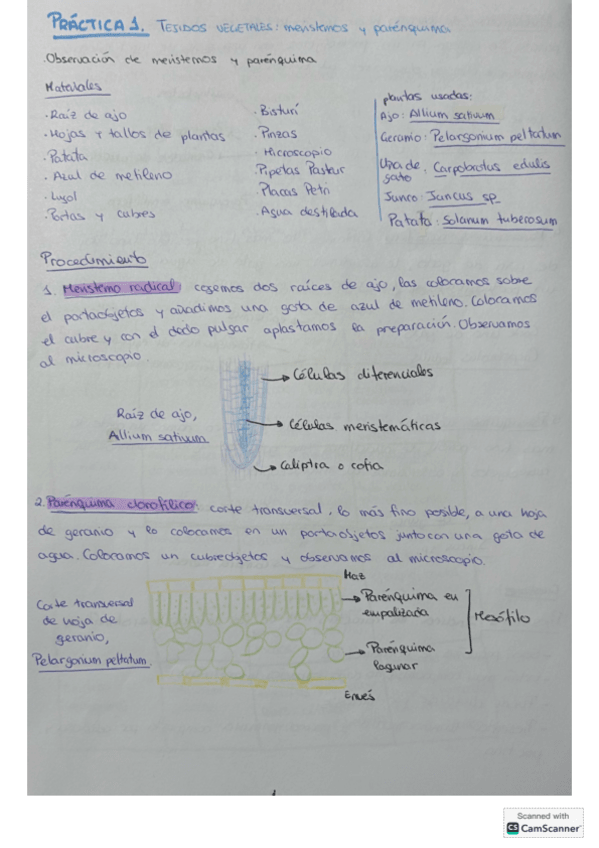 PRÁCTICA 1. TEJIDOS VEGETALES: meristemos y parénquima
·Observación de meristemos y parénquima
Materiales
·Raíz de ajo
·Hojas y tallos de plantas
·Patata
·Azul de metileno
·Lugol
·Portas y cubres
·Bisturí
·Pinzas
·Microscopio
·Pipetas Pasteur
·Placas Petri
·Agua destilada
plantas usadas:
Ajo: Allium sativum
Geranio: Pelargonium peltatum
Uña de gato: Carpobrotus edulis
Junco: Juncus sp
Patata: Solanum tuberosum
Procedimiento
1. Meristemo radical: cogemos dos raíces de ajo, las colocamos sobre
el portaobjetos y añadimos una gota de azul de metileno. Colocamos
el cubre y con el dedo pulgar aplastamos la preparación. Observamos
al microscopio.
Raíz de ajo,
Allium sativum
Células diferenciales
Células meristemáticas
Caliptra o cofia
2. Parénquima clorofílico: corte transversal, lo más fino posible, a una hoja
de geranio y lo colocamos en un portaobjetos junto con una gota de
agua. Colocamos un cubreobjetos y observamos al microscopio.
Corte transversal
de hoja de
geranio,
Pelargonium peltatum.
Haz
Parénquima en
empalizada
Parénquima
lagunar
Mesófilo
Envés
Scanned with
CS CamScanner